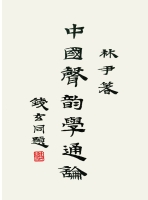 林尹著
中國聲韵學通論
錢玄同題